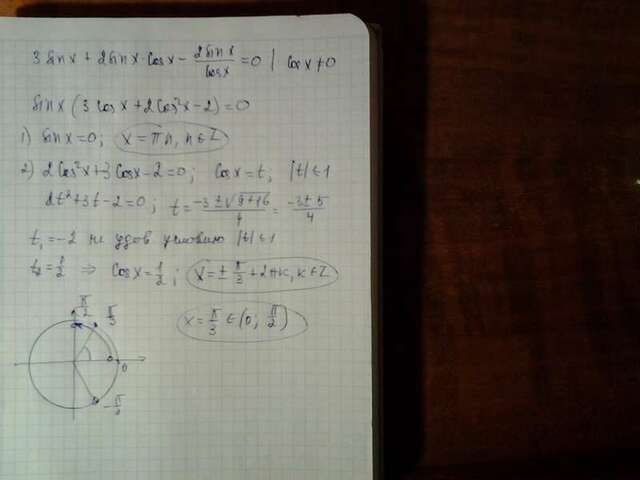 3 sin x + 2 sin x · cos x − 2 sin x / cos x = 0 | cos x ≠ 0
sin x (3 cos x + 2 cos² x − 2) = 0
1) sin x = 0; x = πn, n ∈ Z
2) 2 cos² x + 3 cos x − 2 = 0; cos x = t; |t| ≤ 1
2t² + 3t − 2 = 0; t = (−3 ± √(9+16)) / 4 = (−3 ± 5) / 4
t₁ = −2 не удов условию |t| ≤ 1
t₂ = 1/2 ⇒ cos x = 1/2; x = ± π/3 + 2πк, к ∈ Z
x = π/3 ∈ (0; π/2)
π/2
π/3
0
−π/3